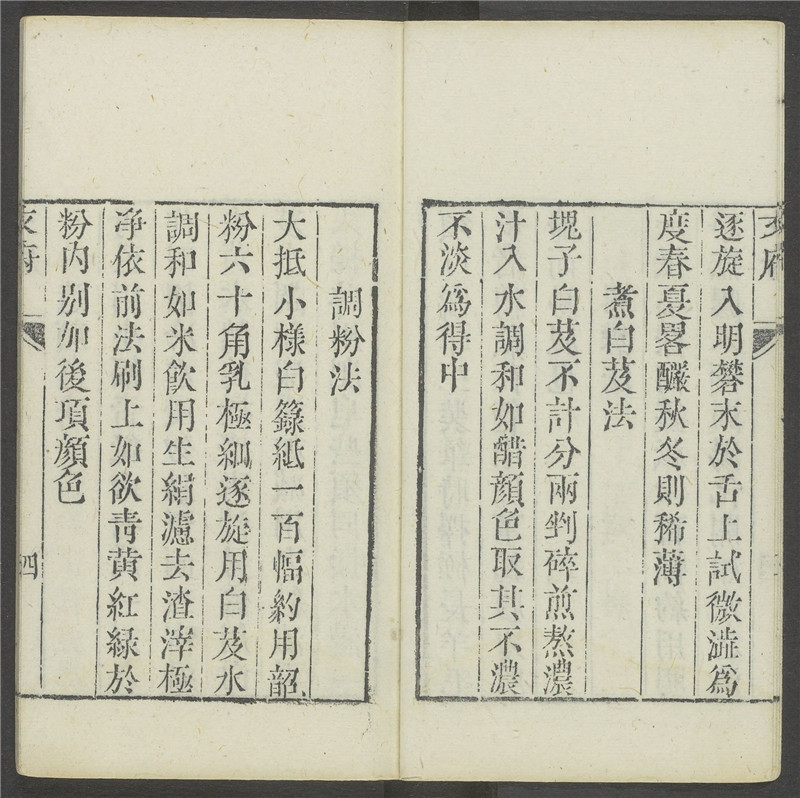 逐旋入明礬末於舌上試微澁為
度春夏畧釅秋冬則稀薄
煮白芨法
塊子白芨不計分兩剉碎煎熬濃
汁入水調和如醋顔色取其不濃
不淡為得中
調粉法
大抵小様白籙紙一百幅約用韶
粉六十角乳極細逐旋用白芨水
調和如米飲用生絹濾去渣滓極
净依前法刷上如欲青黄紅緑於
粉内别加後項顔色
四